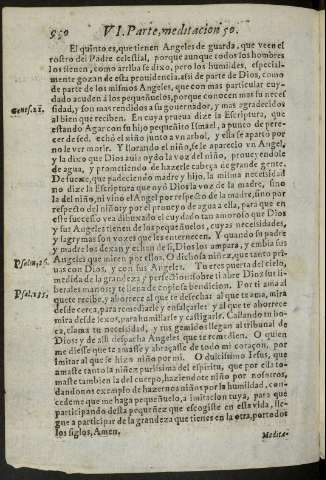 950 VI. Parte, meditacion 50.
El quinto es, que tienen Angeles de guarda, que veen el
rostro del Padre celestial, porque aunque todos los hombres
los tienen, como arriba se dixo, pero los humildes, especial-
mente gozan de esta providencia, assi de parte de Dios, como
de parte de los mismos Angeles, que con mas particular cuy-
dado acuden à los pequeñuelos, porque conocen mas su neces-
sidad, y son mas rendidos a su governador, y mas agradecidos
Genes. 21. al bien que reciben. En cuya prueva dize la Escriptura, que
estando Agar con su hijo pequeño Ismael, a punto de pere-
cer de sed, echó el niño junto a un arbol, y ella se apartó por
no le ver morir. Y llorando el niño, se le apareció un Angel,
y la dixo que Dios avia oydo la voz del niño, proveyendole
de agua, y prometiendo de hazerle cabeça de grande gente.
De suerte, que padeciendo madre y hijo, la misma necessidad
no dize la Escriptura que oyó Dios la voz de la madre, sino
la del niño, ni vino el Angel por respecto de la madre, sino por
respecto del niño, y por el proveyó de agua a ella, para que en
este sucesso vea dibuxado el cuydado tan amoroso que Dios
y sus Angeles tienen de los pequeñuelos, cuyas necessidades,
y lagrymas son vozes que les enternecen. Y quando su padre
y madre los dexan y echan de si, Dios los ampara, y embia sus
Psalm. 26. Angeles que miren por ellos. O dichosa niñez, que tanto pri-
vas con Dios, y con sus Angeles. Tu eres puerta del cielo,
medida de la grandeza y perfeccion: sobre ti abre Dios sus li-
berales manos, y te llena de copiosa bendicion. Por ti ama al
Psal. 135. que te recibe, y aborrece al que te desecha: al que te ama, mira
desde cerca, para remediarle y ensalçarle: y al que te aborrece
mira desde lexos, para humillarle y castigarle. Callando tu bo-
ca, clama tu necessidad, y tus gemidos llegan al tribunal de
Dios: y de alli despacha Angeles que te remedien. O quien
me diesse que te amasse y abraçasse de todo mi coraçon, por
imitar al que se hizo niño por mi. O dulcissimo Iesus, que
amaste tanto la niñez purissima del espiritu, que por ella to-
maste tambien la del cuerpo, haziendote niño por nosotros,
dandonos exemplo de hazernos niños por la humildad, con-
cedeme que me haga pequeñuelo, a imitacion tuya, para que
participando desta pequeñez que escogiste en esta vida, lle-
gue a participar de la grandeza que tienes en la otra, por todos
los siglos, Amen.
Medita-